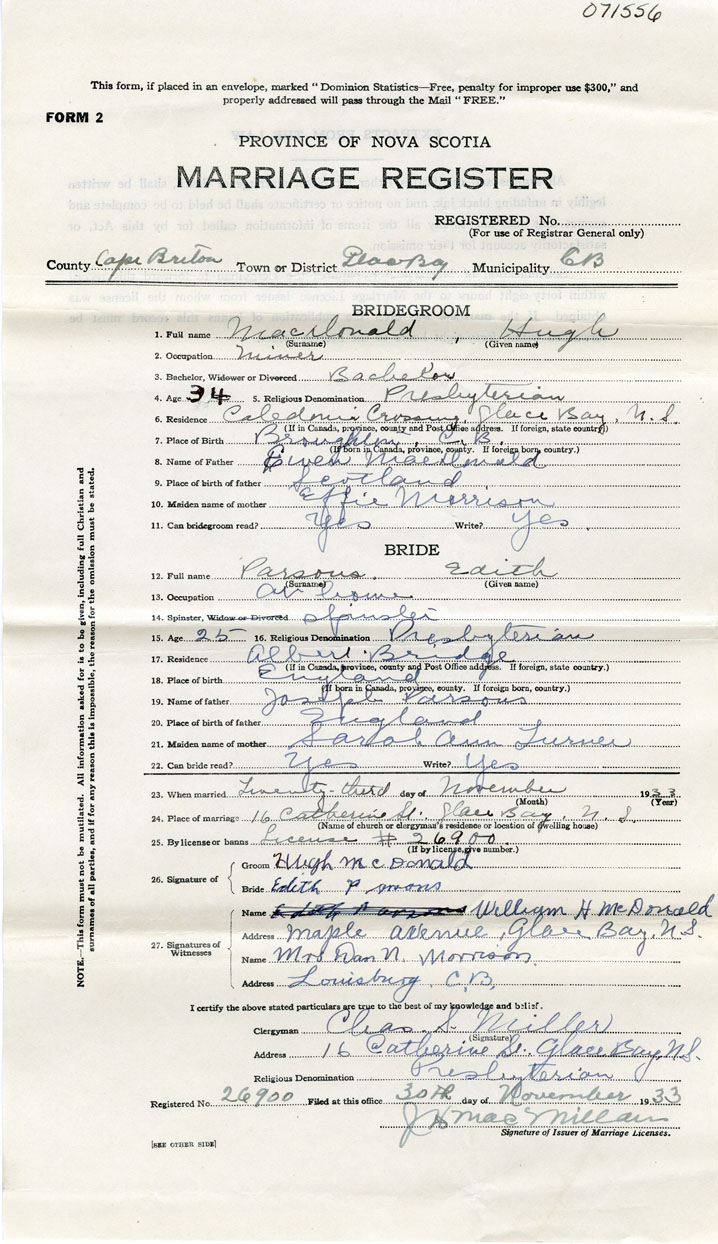 071556
This form, if placed in an envelope, marked "Dominion Statistics—Free, penalty for improper use $300," and
properly addressed will pass through the Mail "FREE."
FORM 2
PROVINCE OF NOVA SCOTIA
MARRIAGE REGISTER
REGISTERED No.
(For use of Registrar General only)
County Cape Breton Town or District Glace Bay Municipality C B
BRIDEGROOM
1. Full name MacDonald, Hugh
(Surname) (Given name)
2. Occupation Miner
3. Bachelor, Widower or Divorced Bachelor
4. Age 34 5. Religious Denomination Presbyterian
6. Residence Caledonia Crossing, Glace Bay, N. S.
(If in Canada, province, county and Post Office address. If foreign, state country)
7. Place of Birth Broughton, C. B.
(If born in Canada, province, county. If foreign born, country.)
8. Name of Father Ewen MacDonald
9. Place of birth of father Scotland
10. Maiden name of mother Effie Morrison
11. Can bridegroom read? Yes Write? Yes
BRIDE
12. Full name Parsons, Edith
(Surname) (Given name)
13. Occupation At home
14. Spinster, Widow or Divorced Spinster
15. Age 25 16. Religious Denomination Presbyterian
17. Residence Albert Bridge
(If in Canada, province, county and Post Office address. If foreign, state country.)
18. Place of birth England
(If born in Canada, province, county. If foreign born, country.)
19. Name of father Joseph Parsons
20. Place of birth of father England
21. Maiden name of mother Sarah Ann Turner
22. Can bride read? Yes Write? Yes
23. When married Twenty-third day of November 1933
(Month) (Year)
24. Place of marriage 16 Catherine St. Glace Bay, N. S.
(Name of church or clergyman's residence or location of dwelling house)
25. By license or banns License # 26900
(If by license, give number.)
26. Signature of
Groom Hugh McDonald
Bride Edith P
27. Signatures of Witnesses
Name William H McDonald
Address Maple Avenue, Glace Bay, N.S.
Name Mrs Dan N. Morrison
Address Louisburg, C.B.
I certify the above stated particulars are true to the best of my knowledge and belief.
Clergyman Chas. S. Miller
(Signature)
Address 16 Catherine St. Glace Bay, N.S.
Religious Denomination Presbyterian
Registered No. 26900 Filed at this office 30th day of November 1933
MacMillan
Signature of Issuer of Marriage Licenses.
[SEE OTHER SIDE]
NOTE.—This form must not be mutilated. All information asked for is to be given, including full Christian and
surnames of all parties, and if for any reason this is impossible, the reason for the omission must be stated.